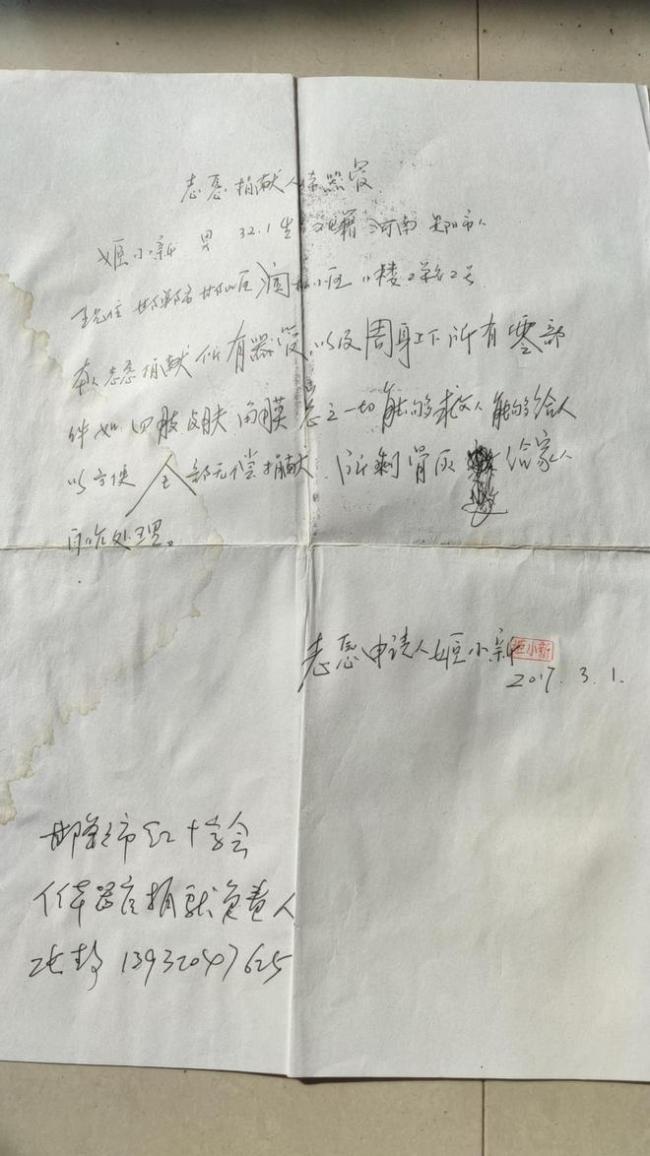 志愿捐献人体器官
姬小新 男 32.1生 籍 河南 阳市人
现住 邯郸市邯山区 小区 11楼2单元2号
本人志愿捐献所有器官,以及周身上下所有零部
件如四肢皮肤角膜总之一切能够救人能够给人
以方便全部无偿捐献。所剩骨灰 给家人
自行处理。
志愿申请人姬小新
姬小新
2017.3.1.
邯郸市红十字会
人体器官捐献负责人
13932047625